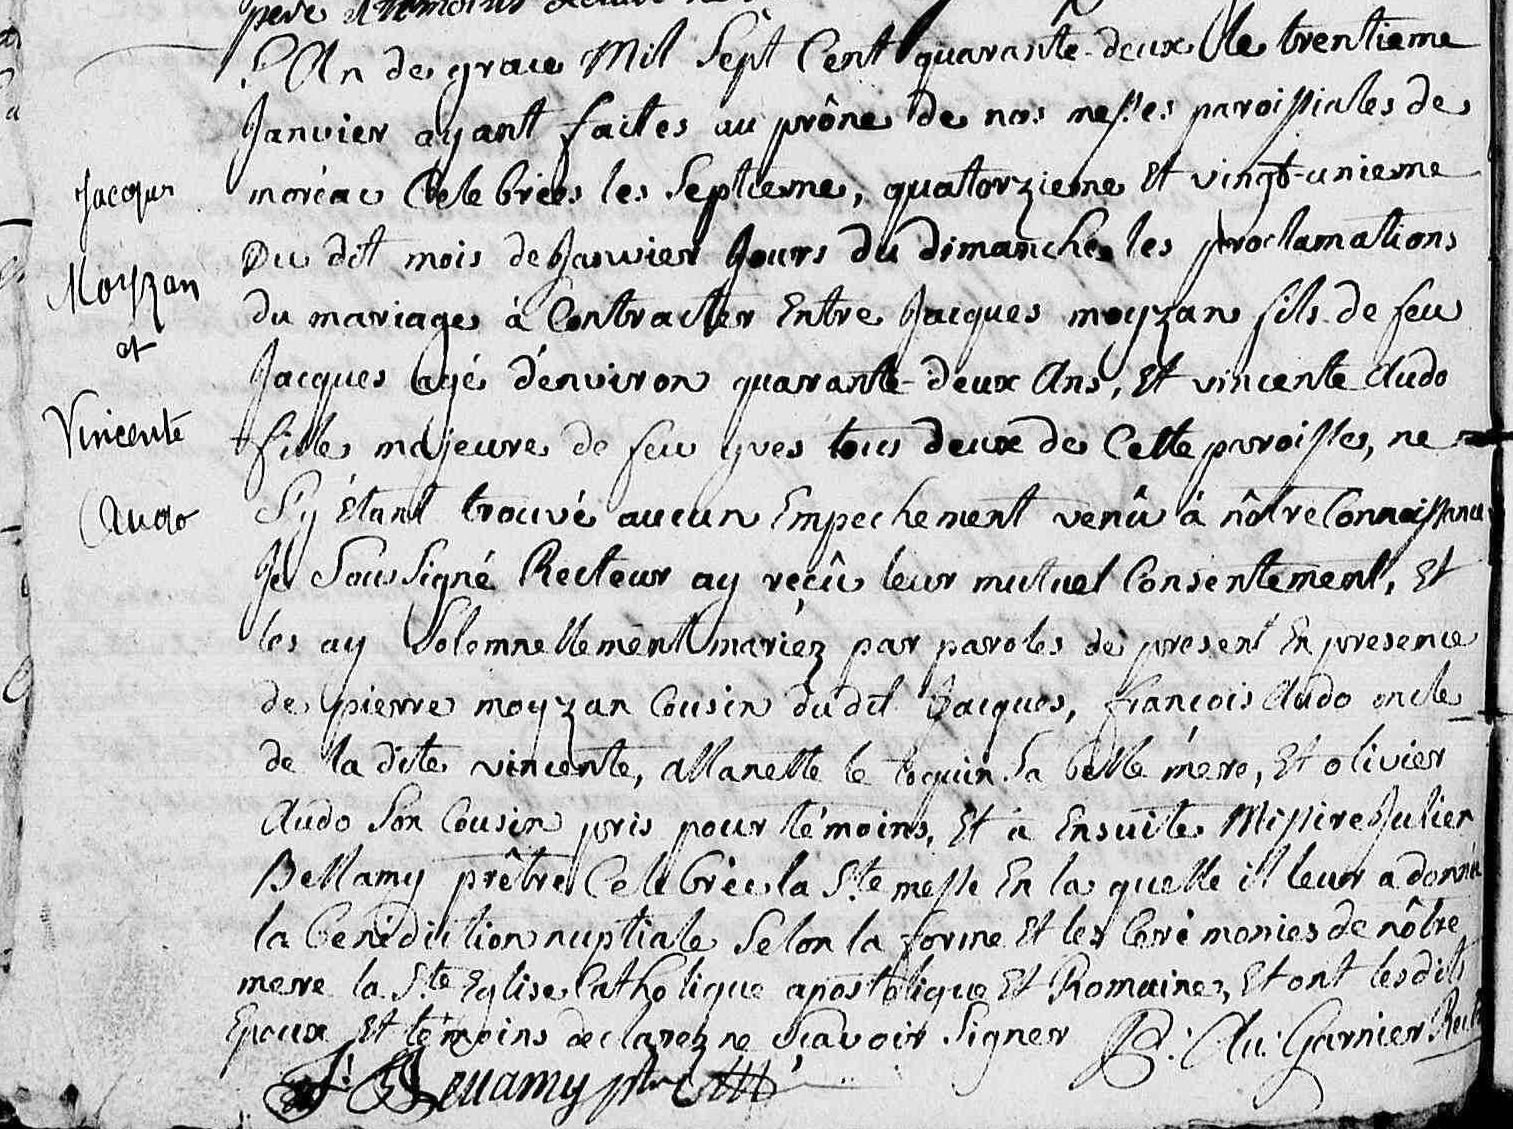 pere et temoins declaré ne
L'An de grace Mil Sept Cent quarante-deux le trentieme
Janvier ayant faites au prône de nos messes paroissiales de
moréac Celebrées les Septieme, quatorzieme Et vingt-unieme
Du dit mois de Janvier Jours du dimanche les proclamations
du mariage à Contracter Entre Jacques moyzan fils de feu
Jacques agé d'environ quarante-deux Ans, Et vincente Audo
fille majeure de feu yves tous deux de Cette paroisse, ne
S'y Étant trouvé aucun Empechement venû à nôtre Connoissance
Je Sous Signé Recteur ay reçû leur mutuel Consentement, Et
les ay Solemnellement mariez par paroles de present En presence
de pierre moyzan Cousin dudit Jacques, françois Audo oncle
de la dite vincente, allanette le toquin Sa belle mere, Et olivier
Audo Son Cousin pris pour témoins, Et a Ensuite Missire Julien
Bellamy prêtre Celebrée la Ste messe En la quelle il leur a donnée
la benediction nuptiale Selon la forme Et les Cerémonies de nôtre
mere la Ste Eglise Catholique apostolique Et Romaine, Et ont lesdits
Epoux Et témoins declarez ne sçavoir Signer
Garnier Rect
J: Bellamy ptre
Jacques
Moyzan
et
Vincente
Audo